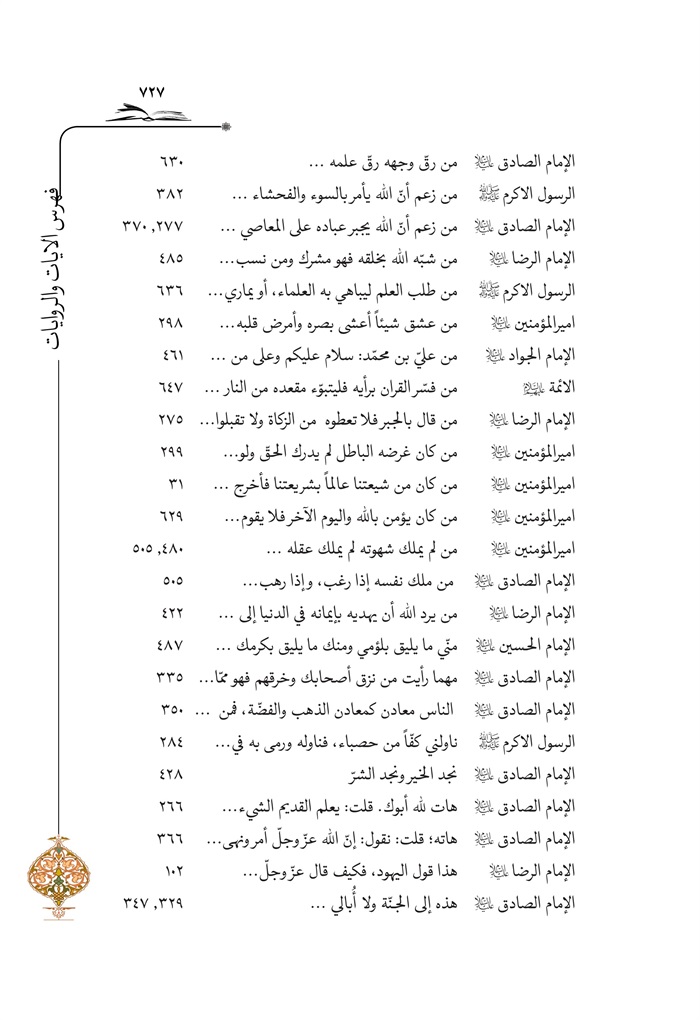 ٧٢٧
فهرس الايات والروايات
الإمام الصادق عليه السلام من رقّ وجهه رقّ علمه ... ٦٣٠
الرسول الاكرم ﷺ من زعم أنّ الله يأمر بالسوء والفحشاء ... ٣٨٢
الإمام الصادق عليه السلام من زعم أنّ الله يجبر عباده على المعاصي ... ٢٧٧, ٣٧٠
الإمام الرضا عليه السلام من شبّه الله بخلقه فهو مشرك ومن نسب... ٤٨٥
الرسول الاكرم ﷺ من طلب العلم ليباهي به العلماء، أو يماري... ٦٣٦
اميرالمؤمنين عليه السلام من عشق شيئاً أعشى بصره وأمرض قلبه... ٢٩٨
الإمام الجواد عليه السلام من عليّ بن محمّد: سلام عليكم وعلى من ... ٤٦١
الائمة عليهم السلام من فسّر القران برأيه فليتبوّء مقعده من النار ... ٦٤٧
الإمام الرضا عليه السلام من قال بالجبر فلا تعطوه من الزكاة ولا تقبلوا... ٢٧٥
اميرالمؤمنين عليه السلام من كان غرضه الباطل لم يدرك الحقّ ولو... ٢٩٩
اميرالمؤمنين عليه السلام من كان من شيعتنا عالماً بشريعتنا فأخرج ... ٣١
اميرالمؤمنين عليه السلام من كان يؤمن بالله واليوم الآخر فلا يقوم... ٦٢٩
اميرالمؤمنين عليه السلام من لم يملك شهوته لم يملك عقله ... ٤٨٠, ٥٠٥
الإمام الصادق عليه السلام من ملك نفسه إذا رغب، وإذا رهب... ٥٠٥
الإمام الرضا عليه السلام من يرد الله أن يهديه بإيمانه في الدنيا إلى ... ٤٢٢
الإمام الحسين عليه السلام منّي ما يليق بلؤمي ومنك ما يليق بكرمك ... ٤٨٧
الإمام الصادق عليه السلام مهما رأيت من نزق أصحابك وخرقهم فهو ممّا... ٣٣٥
الإمام الصادق عليه السلام الناس معادن كمعادن الذهب والفضّة، فمن ... ٣٥٠
الرسول الاكرم ﷺ ناولني كفّاً من حصباء، فناوله ورمى به في... ٢٨٤
الإمام الصادق عليه السلام نجد الخير ونجد الشرّ ٤٢٨
الإمام الصادق عليه السلام هات لله أبوك. قلت: يعلم القديم الشيء... ٢٦٦
الإمام الصادق عليه السلام هاته؛ قلت: نقول: إنّ الله عزّ وجلّ أمر ونهى... ٣٦٦
الإمام الرضا عليه السلام هذا قول اليهود، فكيف قال عزّ وجلّ... ١٠٢
الإمام الصادق عليه السلام هذه إلى الجنّة ولا أُبالي ... ٣٢٩, ٣٤٧